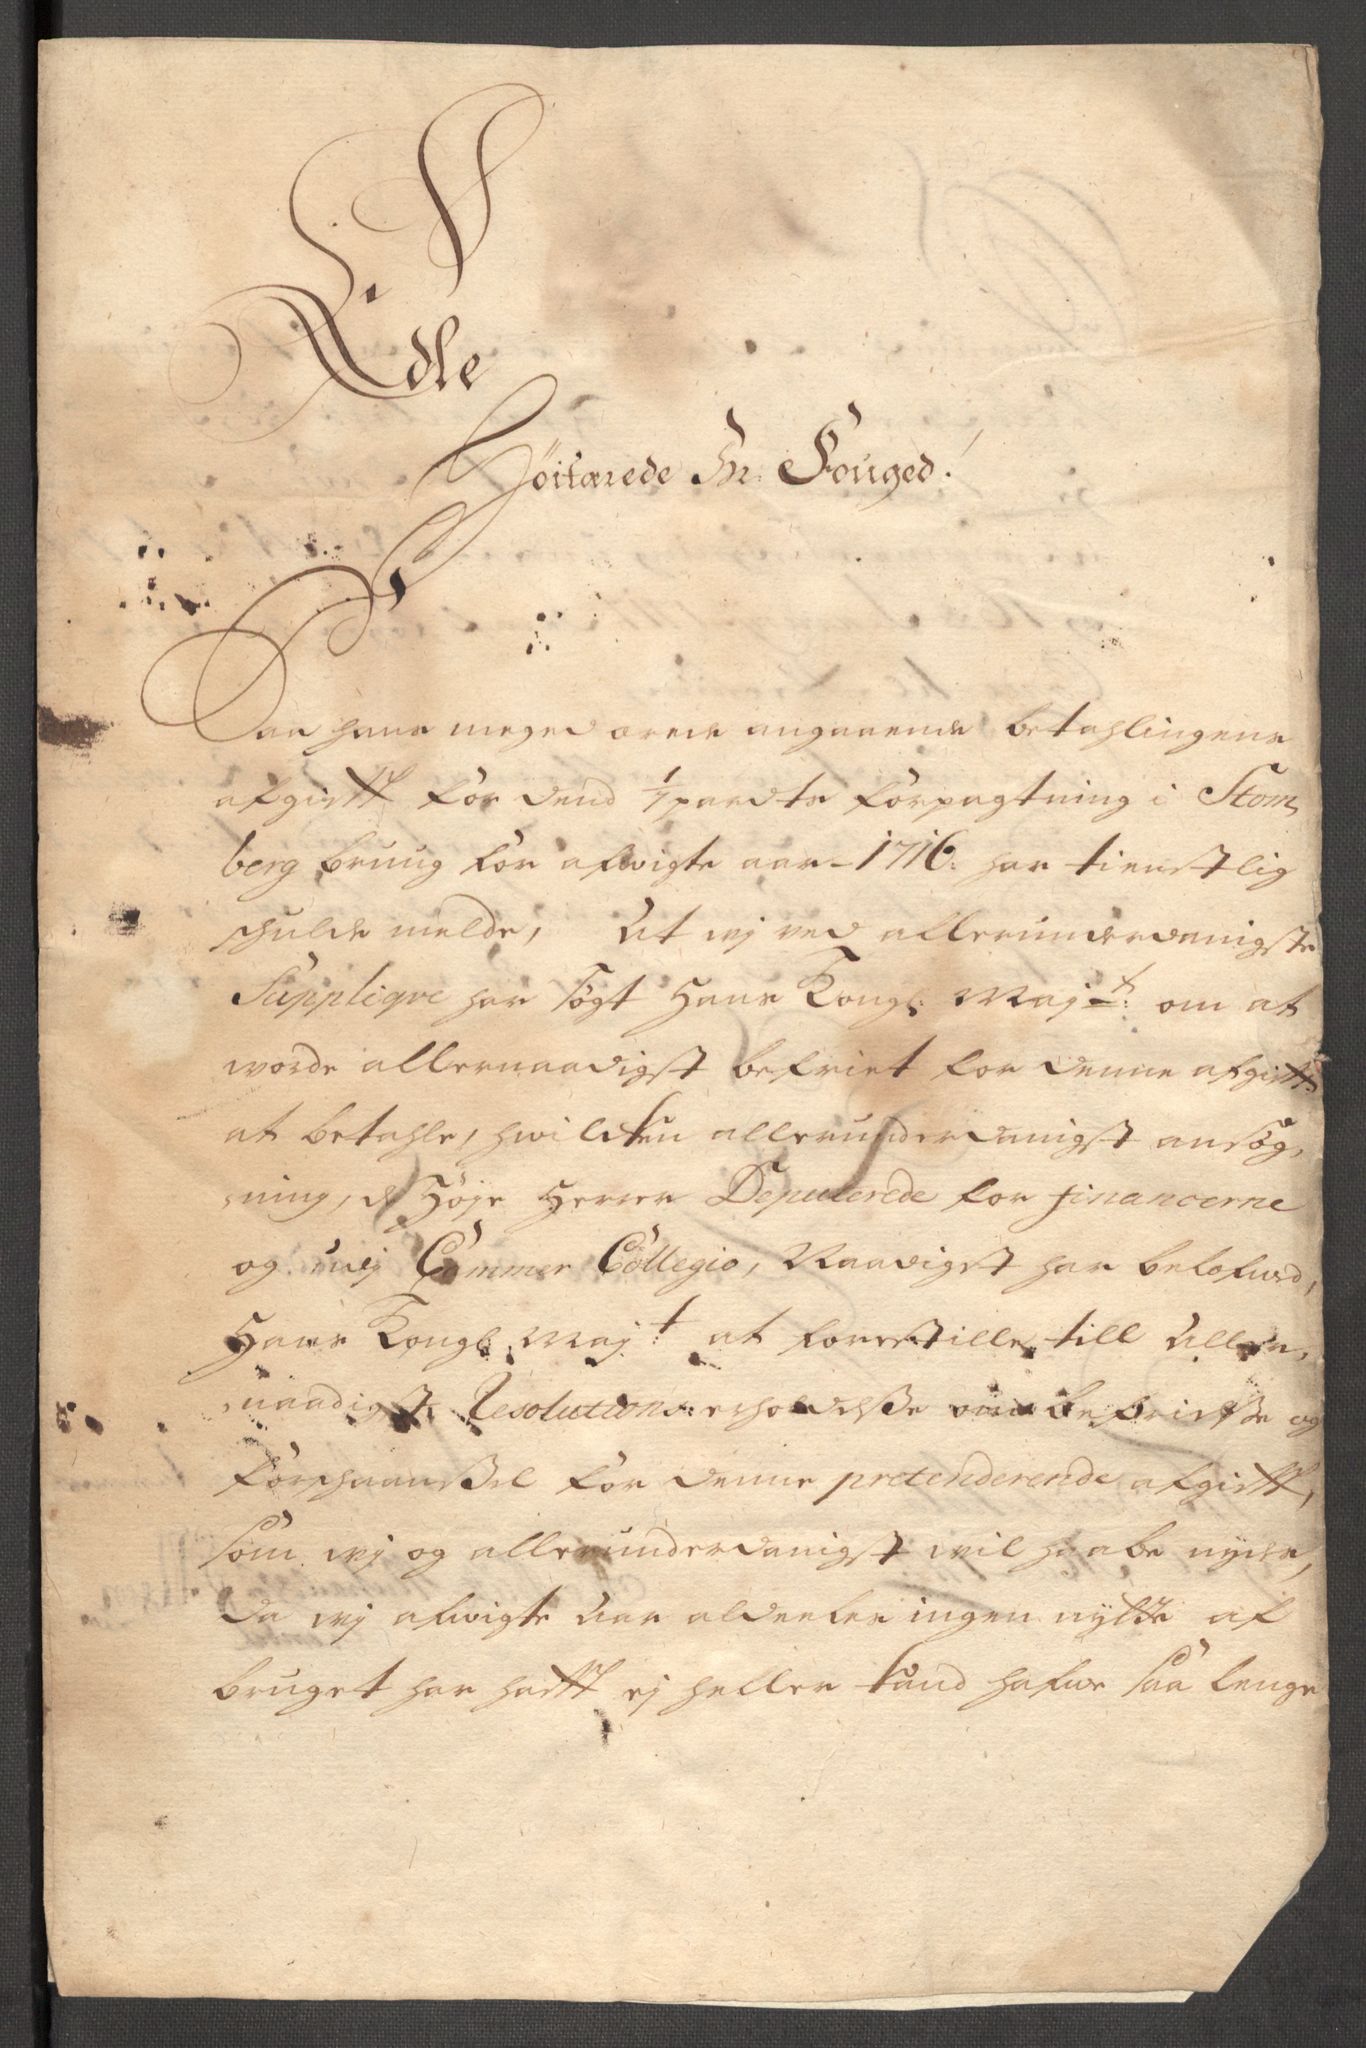 Edle
Höitærede Hr: Fouged!
Paa hans meged ærede angaaende betahlingens
afgifft for dend 1/7 pardts forpagtning i Stom,
berg bruug for afvigte aar 1716. har tienstlig
schulde melde, At vj ved allerunderdanigste
Supplique har søgt Hans Kongl: Maj:t: om at
worde allernaadigst befriet for denne afgifft
at betahle, hwilcken allerunderdanigst ansøg,
ning, de Høje Herrer Deputerede for financerne
og udj Cammer Collegio, Naadigst har belofwed,
Hans Kongl: Maj:t at forestille till Aller,
naadigst Resolutions erholdelsse om befrielsse og
forschaanssel for denne prætenderende afgifft,
som vj og allerunderdanigst vil haabe nyde,
da vj afvigte aar aldeeles ingen nytte af
bruget har hafft ej heller kund hafwe saa lenge